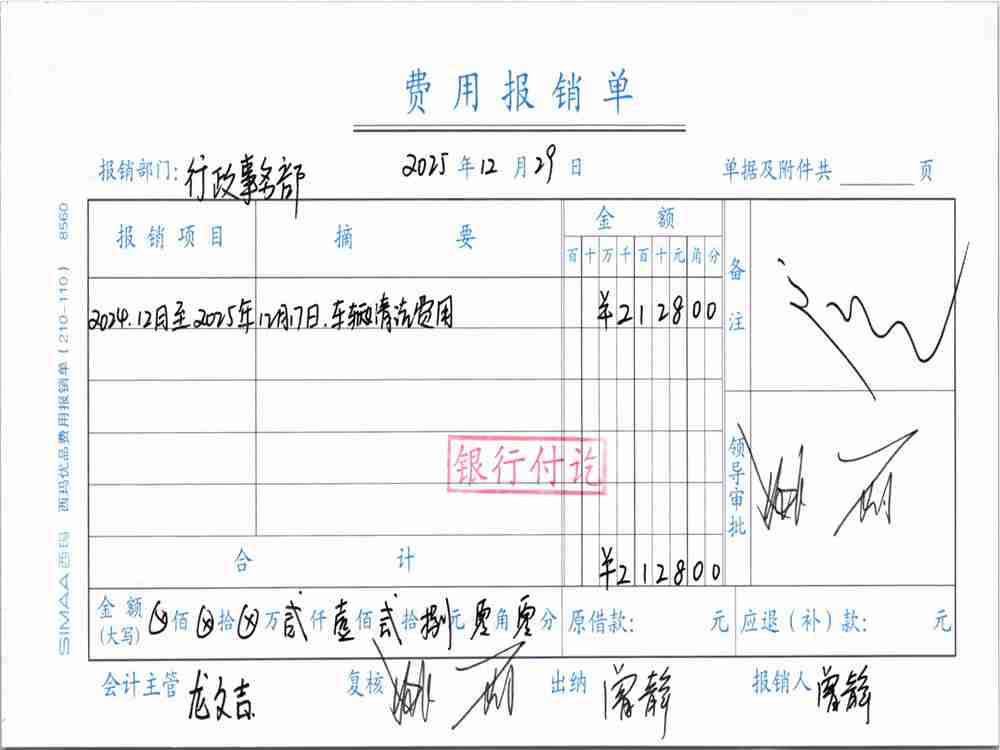 费用报销单
报销部门: 行政事务部 2025 年 12 月 29 日 单据及附件共 页
报销项目 摘要 金额 备注
百 十 万 千 百 十 元 角 分
2024.12月至2025年12月17日.车辆清洁费用 ¥212800
银行付讫
领导审批
合计 ¥212800
金额(大写) ⊗佰⊗拾⊗万贰仟壹佰贰拾捌元零角零分 原借款: 元 应退(补)款: 元
会计主管 龙文吉 复核 出纳 曾静 报销人 曾静
SIMAA西玛 西玛优品费用报销单(210-110) 8560